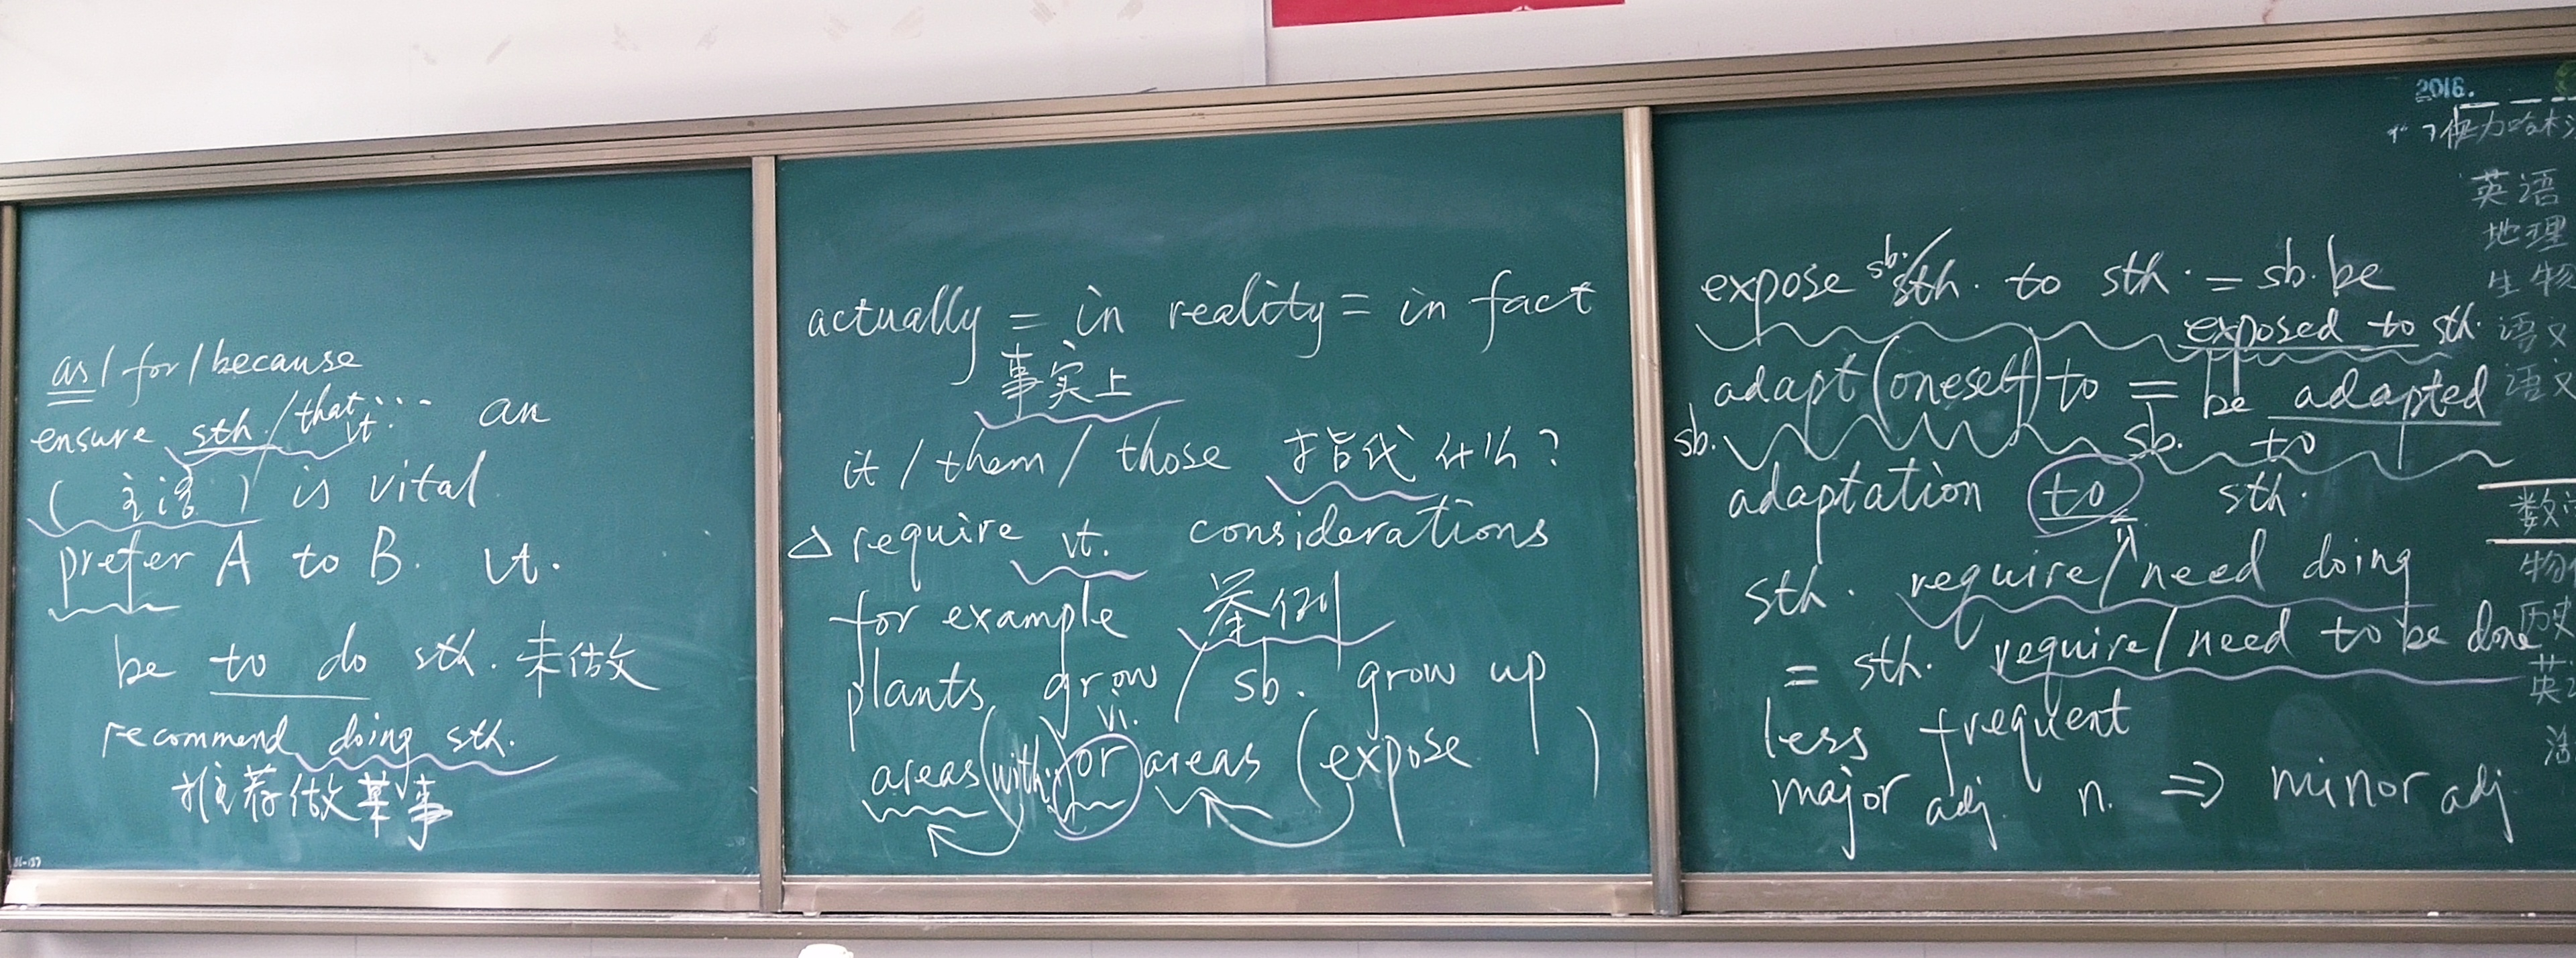 as / for / because
ensure sth. / that ... an
vt.
( 主语 ) is vital
prefer A to B. vt.
be to do sth. 未做
recommend doing sth.
推荐做某事
actually = in reality = in fact
事实上
it / them / those 指代什么?
△ require vt. considerations
for example 举例
plants grow / sb. grow up
vi.
areas (with) or areas (expose )
expose sb./sth. to sth. = sb. be
exposed to sth.
adapt (oneself) to = be adapted
sb. sb. to
adaptation to sth.
sth. require / need doing
= sth. require / need to be done
less frequent
major adj. n. ⇒ minor adj.
2016.
英语
地理
生物
语文
语文
数
物
历史
英